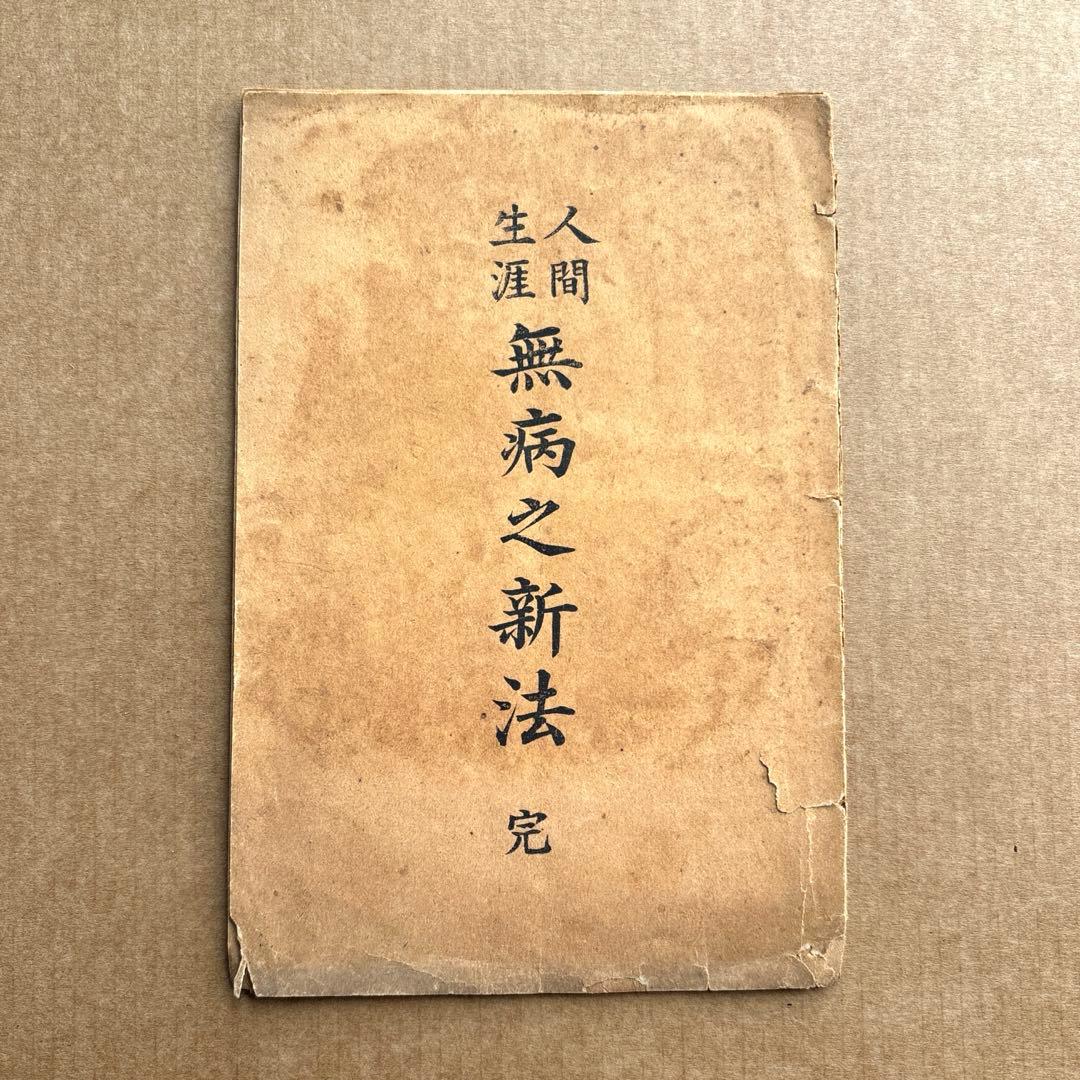 人間
生涯
無病之新法
完